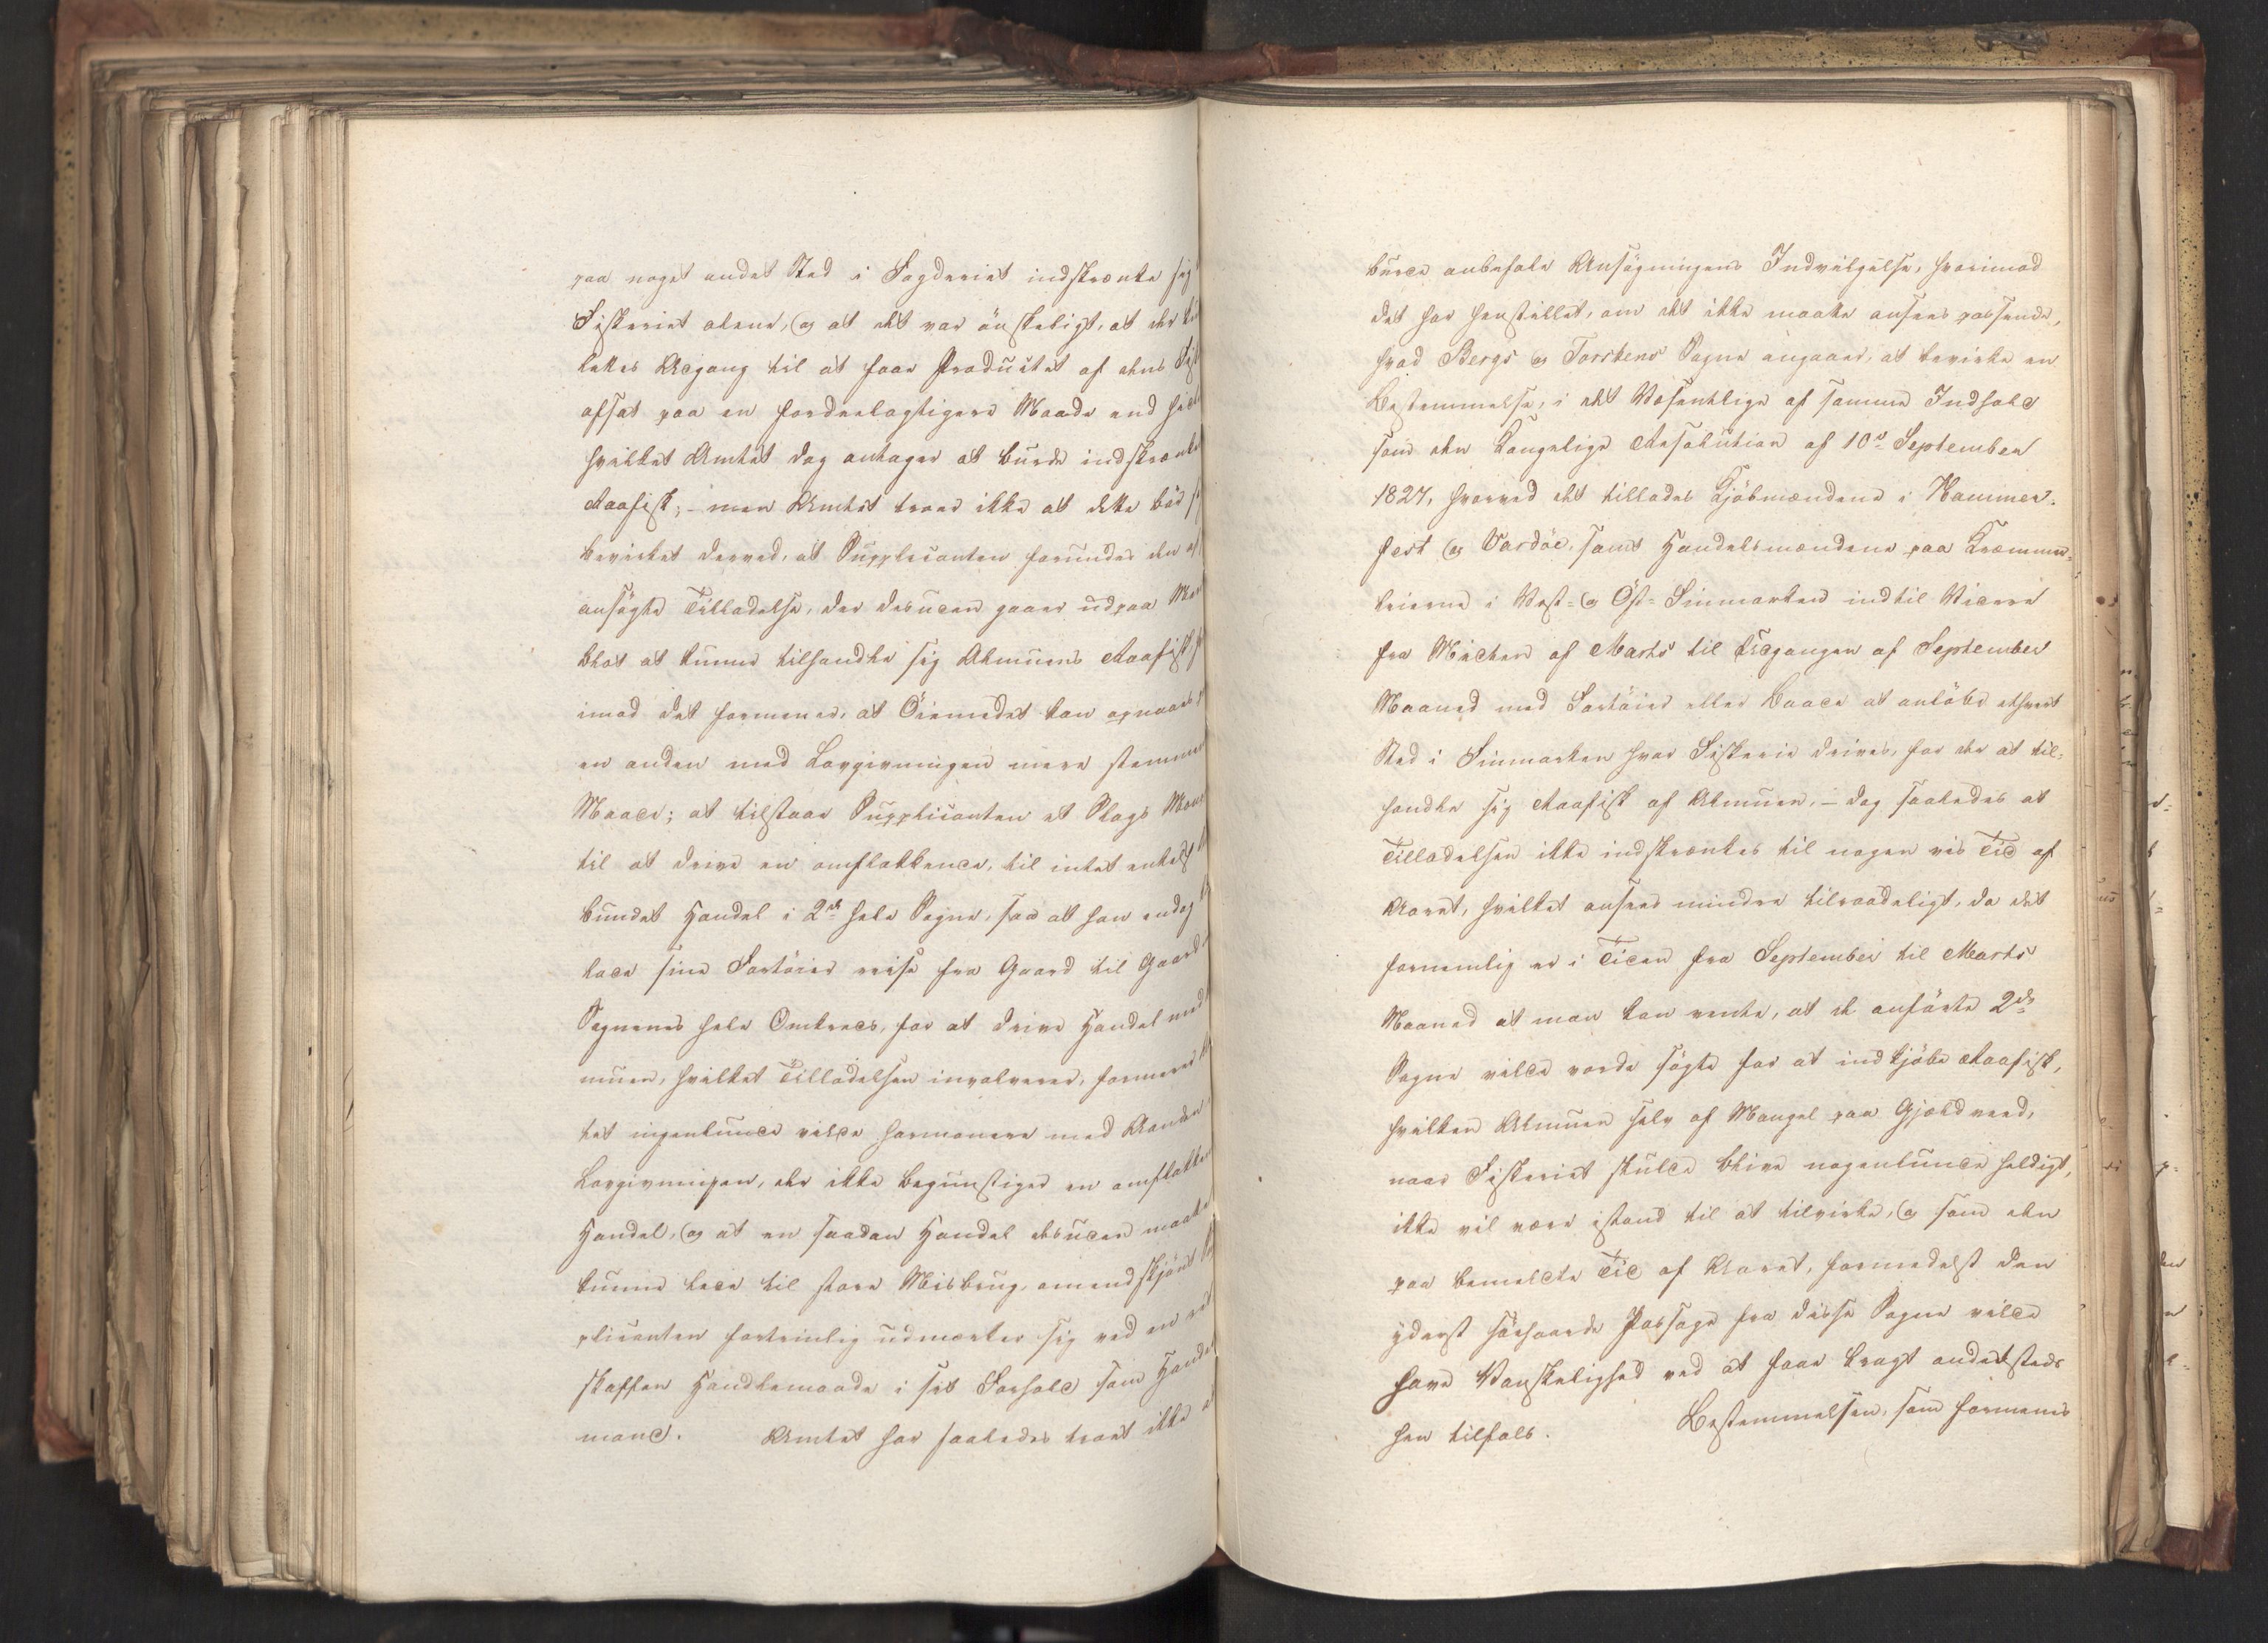 paa noget andet Sted i Fogderiet indskrænke sig
Fiskeriet alene, og at det var önskeligt, at der
lettes Adgang til at faae Productet af dens
afsat paa en fordeelagtigere Maade end
hvilket Amtet dog antager at burde indskrænke
Raafisk; – men Amtet troer ikke at dette bör
bevirket derved, at Supplicanten forundes den
ansögte Tilladelse, der desuden gaaer ud paa
blot at kunne tilhandle sig Almuens Raafisk
imod det formener, at Öiemedet kan opnaaes
en anden med Lovgivningen mere stemmende
Maade; at tilstaae Supplicanten et Slags
til at drive en omflakkende, til intet enkelt
bundet Handel i 2de hele Sogne, saa at han endog
lade sine Fartöier reise fra Gaard til Gaard
Sognenes hele Omkreds, for at drive Handel med
muen, hvilket Tilladelsen involverer, formenes
tet ingenlunde vilde harmonere med Aanden
Lovgivningen, der ikke begunstiger en omflakkende
Handel, og at en saadan Handel desuden maatte
kunne lede til store Misbrug, omendskjönt
plicanten fortrinlig udmærker sig ved en
skaffen Handlemaade i sit Forhold som Handels
mand. Amtet har saaledes troet ikke at
burde anbefale Ansögningens Indvilgelse, hvorimod
det har henstillet, om det ikke maatte ansees passende,
hvad Bergs og Torskens Sogne angaaer, at bevirke en
Bestemmelse, i det Væsentlige af samme Indhold
som den Kongelige Resolution af 10de September
1827, hvorved det tillades Kjöbmændene i Hammer-
fest og Vardöe, samt Handelsmændene paa Kræmmer-
leierne i Vest- og Öst-Finmarken indtil Videre
fra Midten af Marts til Udgangen af September
Maaned med Fartöier eller Baade at anlöbe ethvert
Sted i Finmarken hvor Fiskerie drives, for der at til-
handle sig Raafisk af Almuen, – dog saaledes at
Tilladelsen ikke indskrænkes til nogen vis Tid af
Aaret, hvilket ansees mindre tilraadeligt, da det
fornemlig er i Tiden fra September til Marts
Maaned at man kan vente, at de anförte 2de
Sogne vilde vorde sögte for at indkjöbe Raafisk,
hvilken Almuen selv af Mangel paa Gjældveed,
naar Fiskeriet skulde blive nogenlunde heldigt,
ikke vil være istand til at tilvirke, og som den
paa bemeldte Tid af Aaret, formedelst den
yderst farefulde Passage fra disse Sogne vilde
have Vanskelighed ved at faae bragt andetsteds
hen tilfals. Bestemmelsen, som formenes